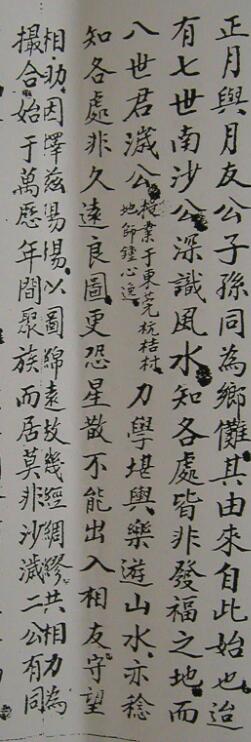 正月與月友公子孫同為鄉儺其由來自此始也迨
有七世南沙公深識風水知各處皆非發福之地而
八世君濊公授業于東莞杭桔村地師鍾心逸力學堪輿樂遊山水亦稔
知各處非久遠良圖更恐星散不能出入相友守望
相助因擇茲易傷以圖綿遠故幾經綢繆共相力為
撮合始于萬歷年間聚族而居莫非沙濊二公有同